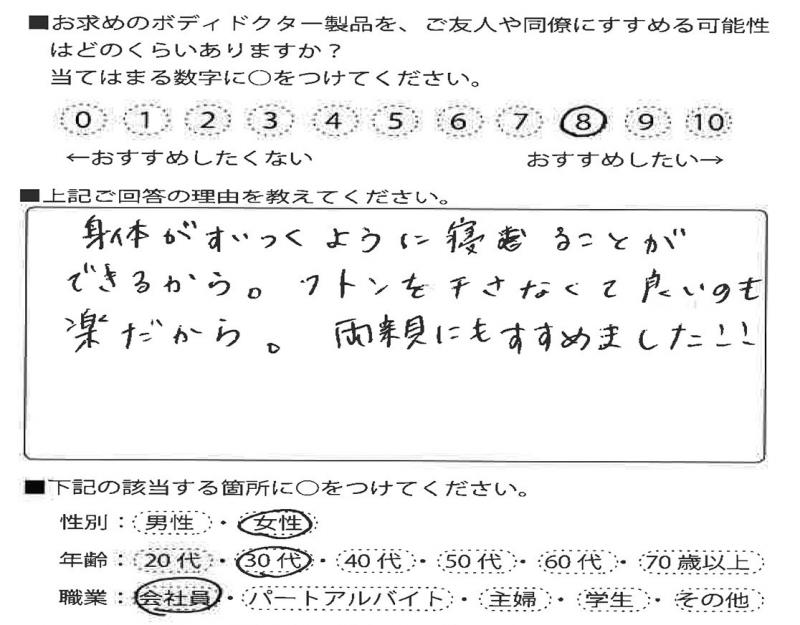 ■お求めのボディドクター製品を、ご友人や同僚にすすめる可能性
はどのくらいありますか？
当てはまる数字に○をつけてください。
0 1 2 3 4 5 6 7 8 9 10
←おすすめしたくない おすすめしたい→
■上記ご回答の理由を教えてください。
身体がすいつくように寝ることが
できるから。フトンを干さなくて良いのも
楽だから。両親にもすすめました!!
■下記の該当する箇所に○をつけてください。
性別：男性・女性
年齢：20代・30代・40代・50代・60代・70歳以上
職業：会社員・パートアルバイト・主婦・学生・その他